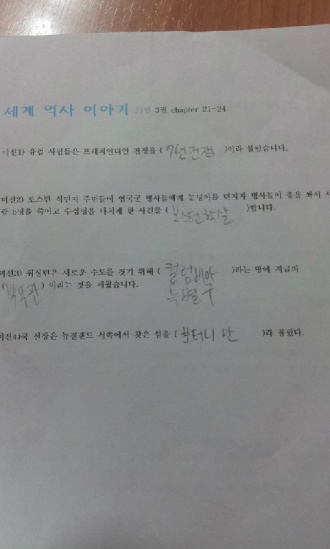 세계 역사 이야기 3권 chapter 21-24
미션1) 유럽 사람들은 프렌치인디언 전쟁을 ( 7년전쟁 )이라 불렀습니다.
미션2) 보스턴 식민지 주민들이 영국군 병사들에게 눈덩이를 던지자 병사들이 총을 쏴서
명을 죽이고 수십명을 다치게 한 사건을 ( 보스턴학살 )합니다.
미션3) 워싱턴은 새로운 수도를 짓기 위해 ( 컬럼비아 )라는 땅에 지금의
특별구
(백악관 ) 이라는 것을 세웠습니다.
선장은 뉴질랜드 서쪽에서 찾은 섬을 ( 보터니 만 )라 불렀다.